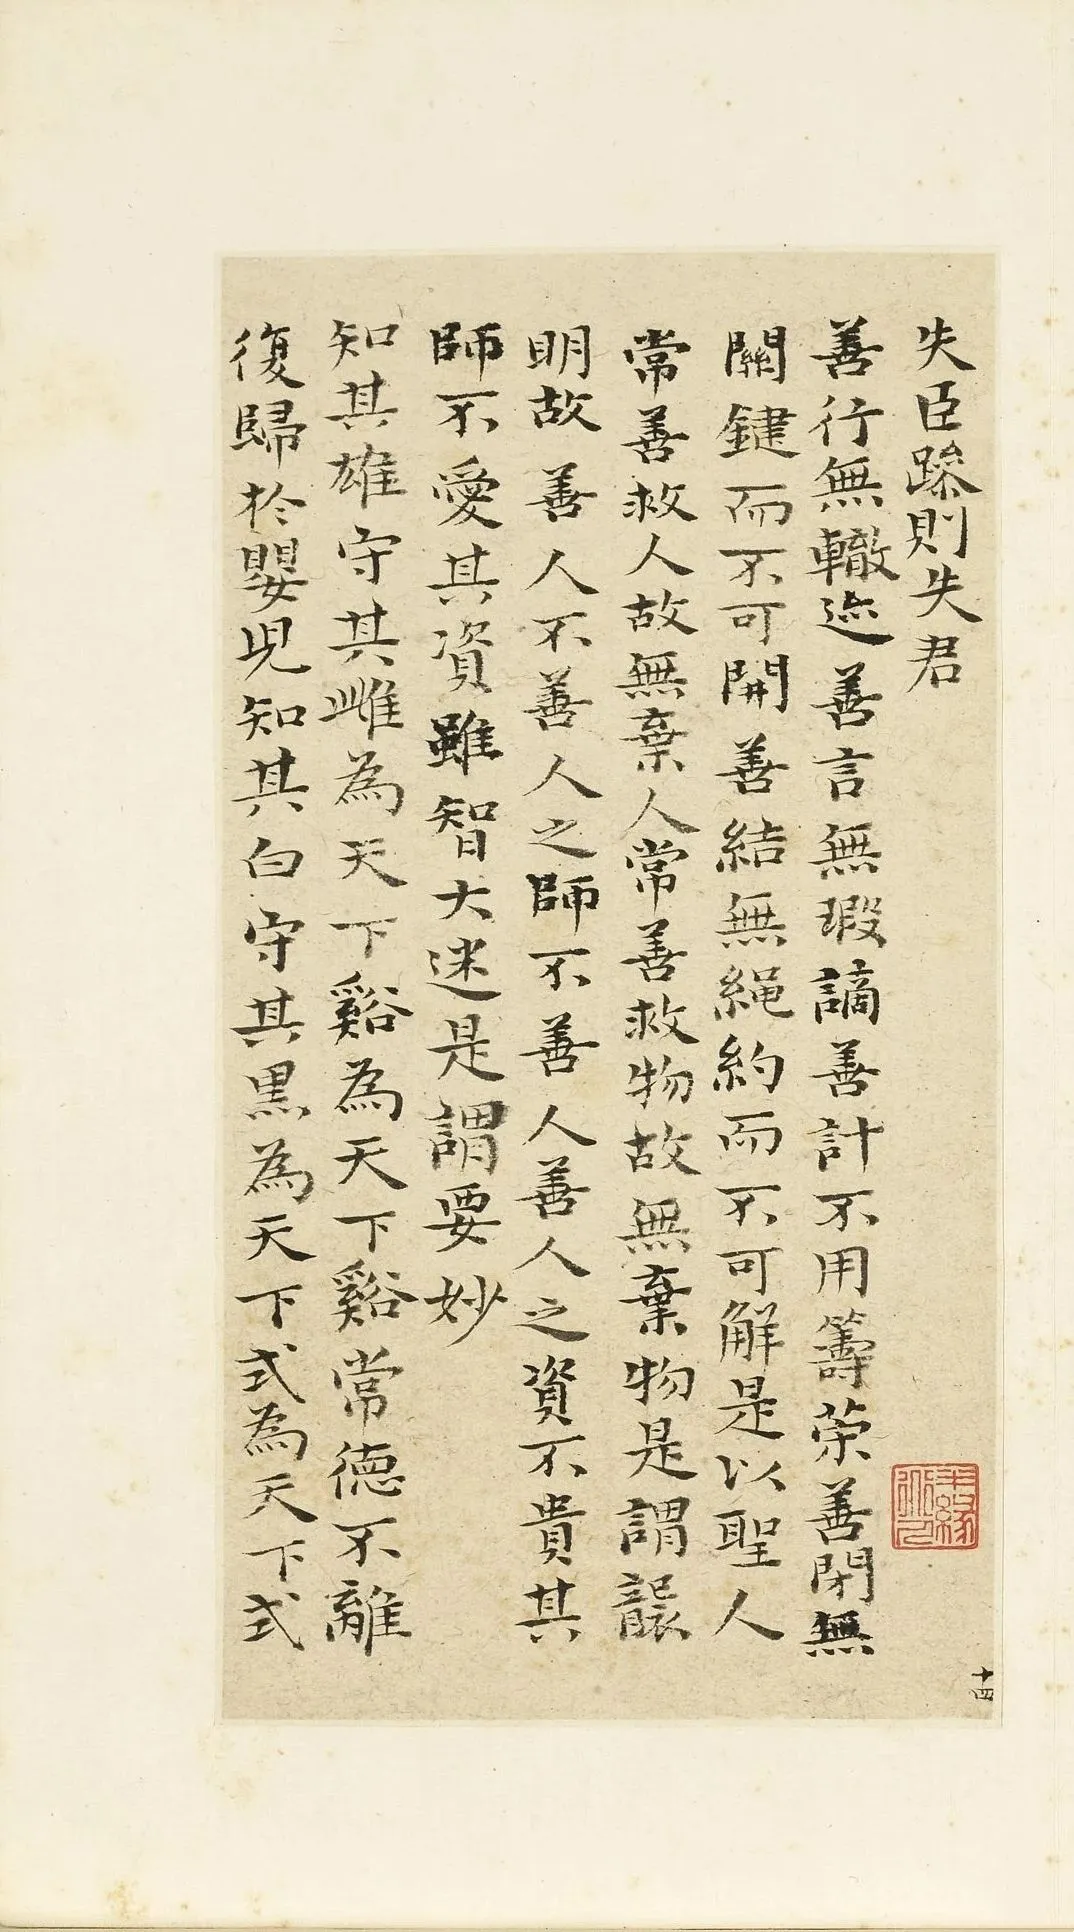 失臣躁則失君
善行無轍迹善言無瑕謫善計不用籌策善閉無
關鍵而不可開善結無繩約而不可解是以聖人
常善救人故無棄人常善救物故無棄物是謂襲
明故善人不善人之師不善人善人之資不貴其
師不愛其資雖智大迷是謂要妙
知其雄守其雌為天下谿為天下谿常德不離
復歸於嬰兒知其白守其黑為天下式為天下式
十四